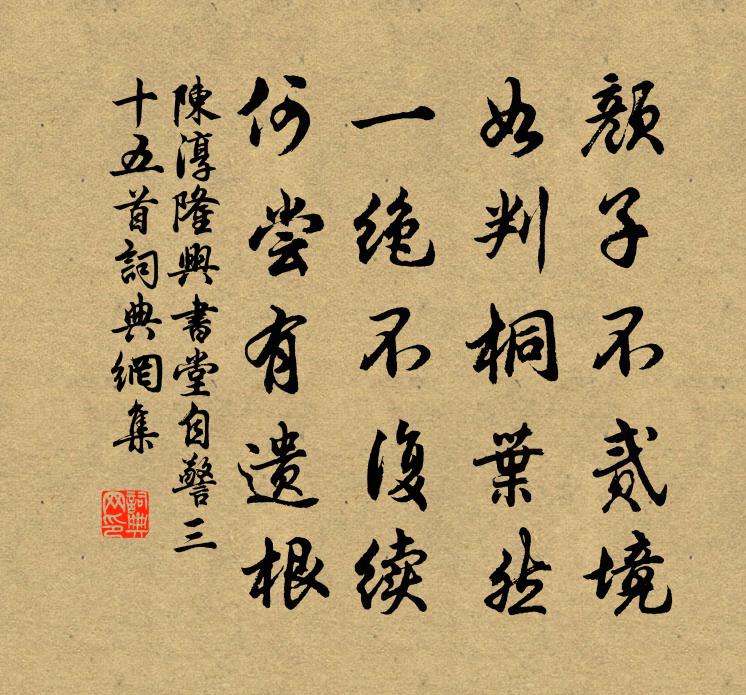 颜子不贰境
如判桐葉然
一绝不復续
何尝有遗根
陳淳隆興書堂自警三
十五首詞典網集
詞典網印